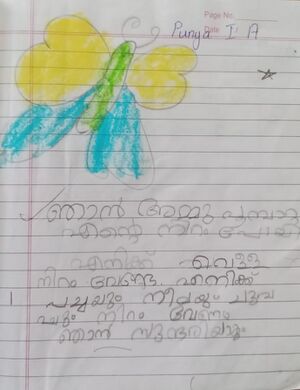 Page No.
Date
Punya I A
ഞാൻ അമ്മു പൂമ്പാറ്റ
എന്റെ നിറം പോയി
എനിക്ക് വെള്ള
നിറം വേണ്ട. എനിക്ക്
പച്ചയും നീലയും ചുവ
പ്പും നിറം വേണം
ഞാൻ സുന്ദരിയാവും